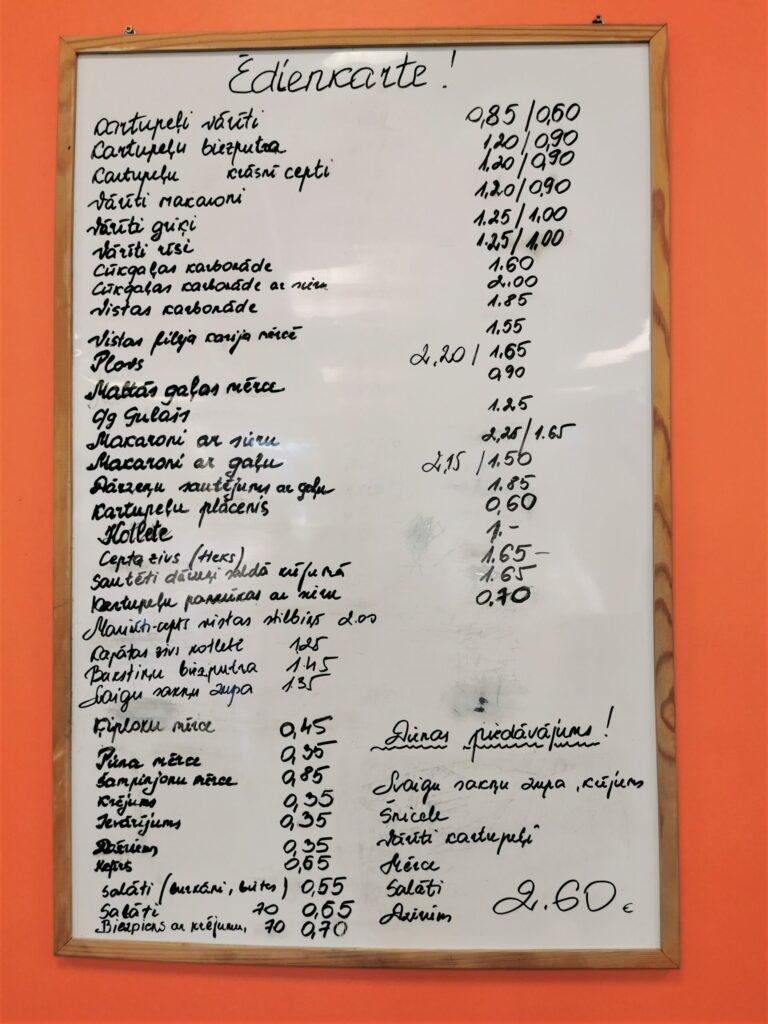 Ēdienkarte!
Kartupeļi vārīti 0,85/0,60
Kartupeļu biezputra 1,20/0,90
Kartupeļu krāsnī cepti 1.20/0,90
Vārīti makaroni 1,20/0,90
Vārīti griķi 1.25/1,00
Vārīti rīsi 1.25/1,00
Cūkgaļas karbonāde 1.60
Cūkgaļas karbonāde ar sieru 2.00
Vistas karbonāde 1.85
Vistas fileja karija mērcē 1.55
Plovs 2,20/1.65
Maltās gaļas mērce 0,90
Gulašs 1.25
Makaroni ar sieru 2,25/1.65
Makaroni ar gaļu 2,15/1.50
Dārzeņu sautējums ar gaļu 1.85
Kartupeļu plācenis 0,60
Kotlete 1.-
Cepta zivs (Heks) 1.65-
Sautēti dārzeņi saldā krējumā 1.65
Kartupeļu pankūkas ar sieru 0,70
cepts vistas stilbiņš 2.00
Kapātas zivs kotlete 1.25
Bukstiņu biezputra 1.45
Svaigu sakņu zupa 1.35
Ķiploku mērce 0,45
Piena mērce 0,35
Šampinjonu mērce 0,85
Krējums 0,35
Ievārījums 0,35
Dzēriens 0,35
Kefīrs 0,65
Salāti (burkāni, bietes) 0,55
Salāti 70 0,65
Biezpiens ar krējumu, 70 0,70
Dienas piedāvājums!
Svaigu sakņu zupa, krējums
Šnicele
Vārīti kartupeļi
Mērce
Salāti
Dzēriens
2.60 €